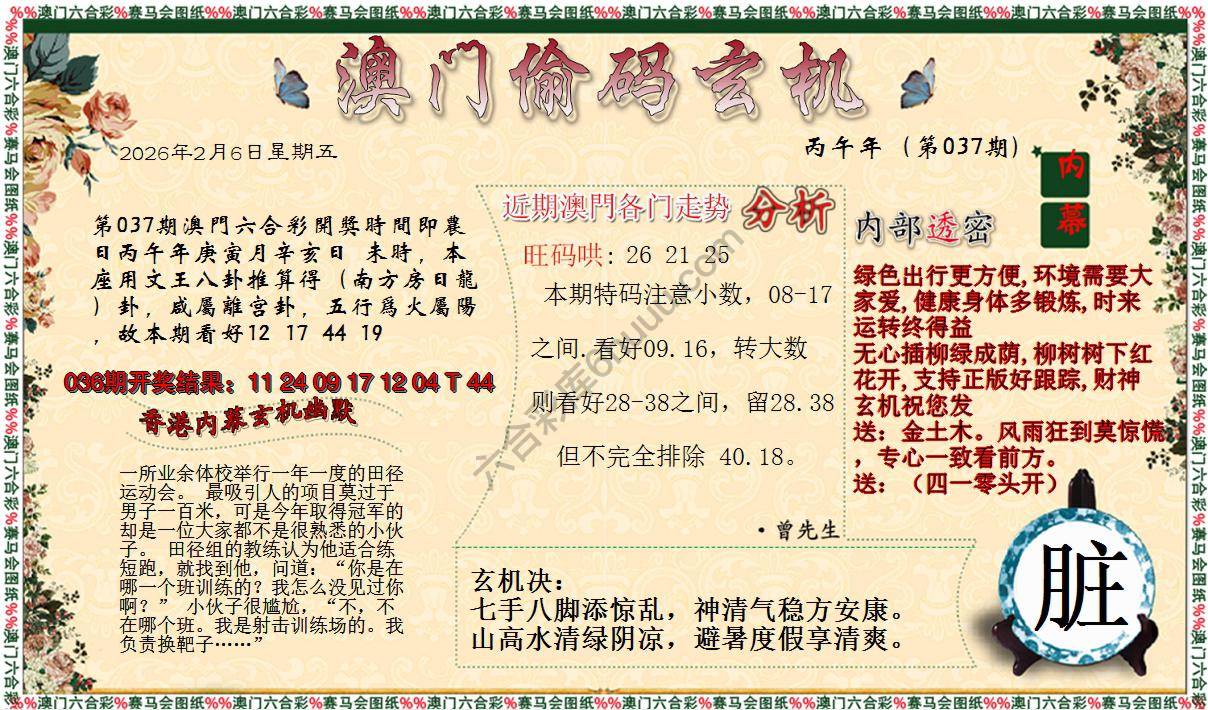 %%澳门六合彩%赛马会图纸%%澳门六合彩%赛马会图纸%%澳门六合彩%赛马会图纸%%澳门六合彩%赛马会图纸%%澳门六合彩%赛马会图纸%%澳门六合彩%赛马会图纸%%
澳门偷码玄机
2026年2月6日星期五
丙午年（第037期）
内
幕
第037期澳門六合彩開獎時間即農
日丙午年庚寅月辛亥日 未時，本
座用文王八卦推算得（南方房日龍
）卦，咸屬離宫卦，五行爲火屬陽
，故本期看好12 17 44 19
036期开奖结果：11 24 09 17 12 04 T 44
香港内幕玄机幽默
一所业余体校举行一年一度的田径
运动会。 最吸引人的项目莫过于
男子一百米，可是今年取得冠军的
却是一位大家都不是很熟悉的小伙
子。 田径组的教练认为他适合练
短跑，就找到他，问道：“你是在
哪一个班训练的？我怎么没见过你
啊？” 小伙子很尴尬，“不，不
在哪个班。我是射击训练场的。我
负责换靶子……”
近期澳門各门走势 分析
旺码哄: 26 21 25
本期特码注意小数，08-17
之间.看好09.16，转大数
则看好28-38之间，留28.38
但不完全排除 40.18。
·曾先生
内部透密
绿色出行更方便,环境需要大
家爱,健康身体多锻炼,时来
运转终得益
无心插柳绿成荫,柳树树下红
花开,支持正版好跟踪,财神
玄机祝您发
送：金土木。风雨狂到莫惊慌
，专心一致看前方。
送：（四一零头开）
玄机决：
七手八脚添惊乱，神清气稳方安康。
山高水清绿阴凉，避暑度假享清爽。
脏